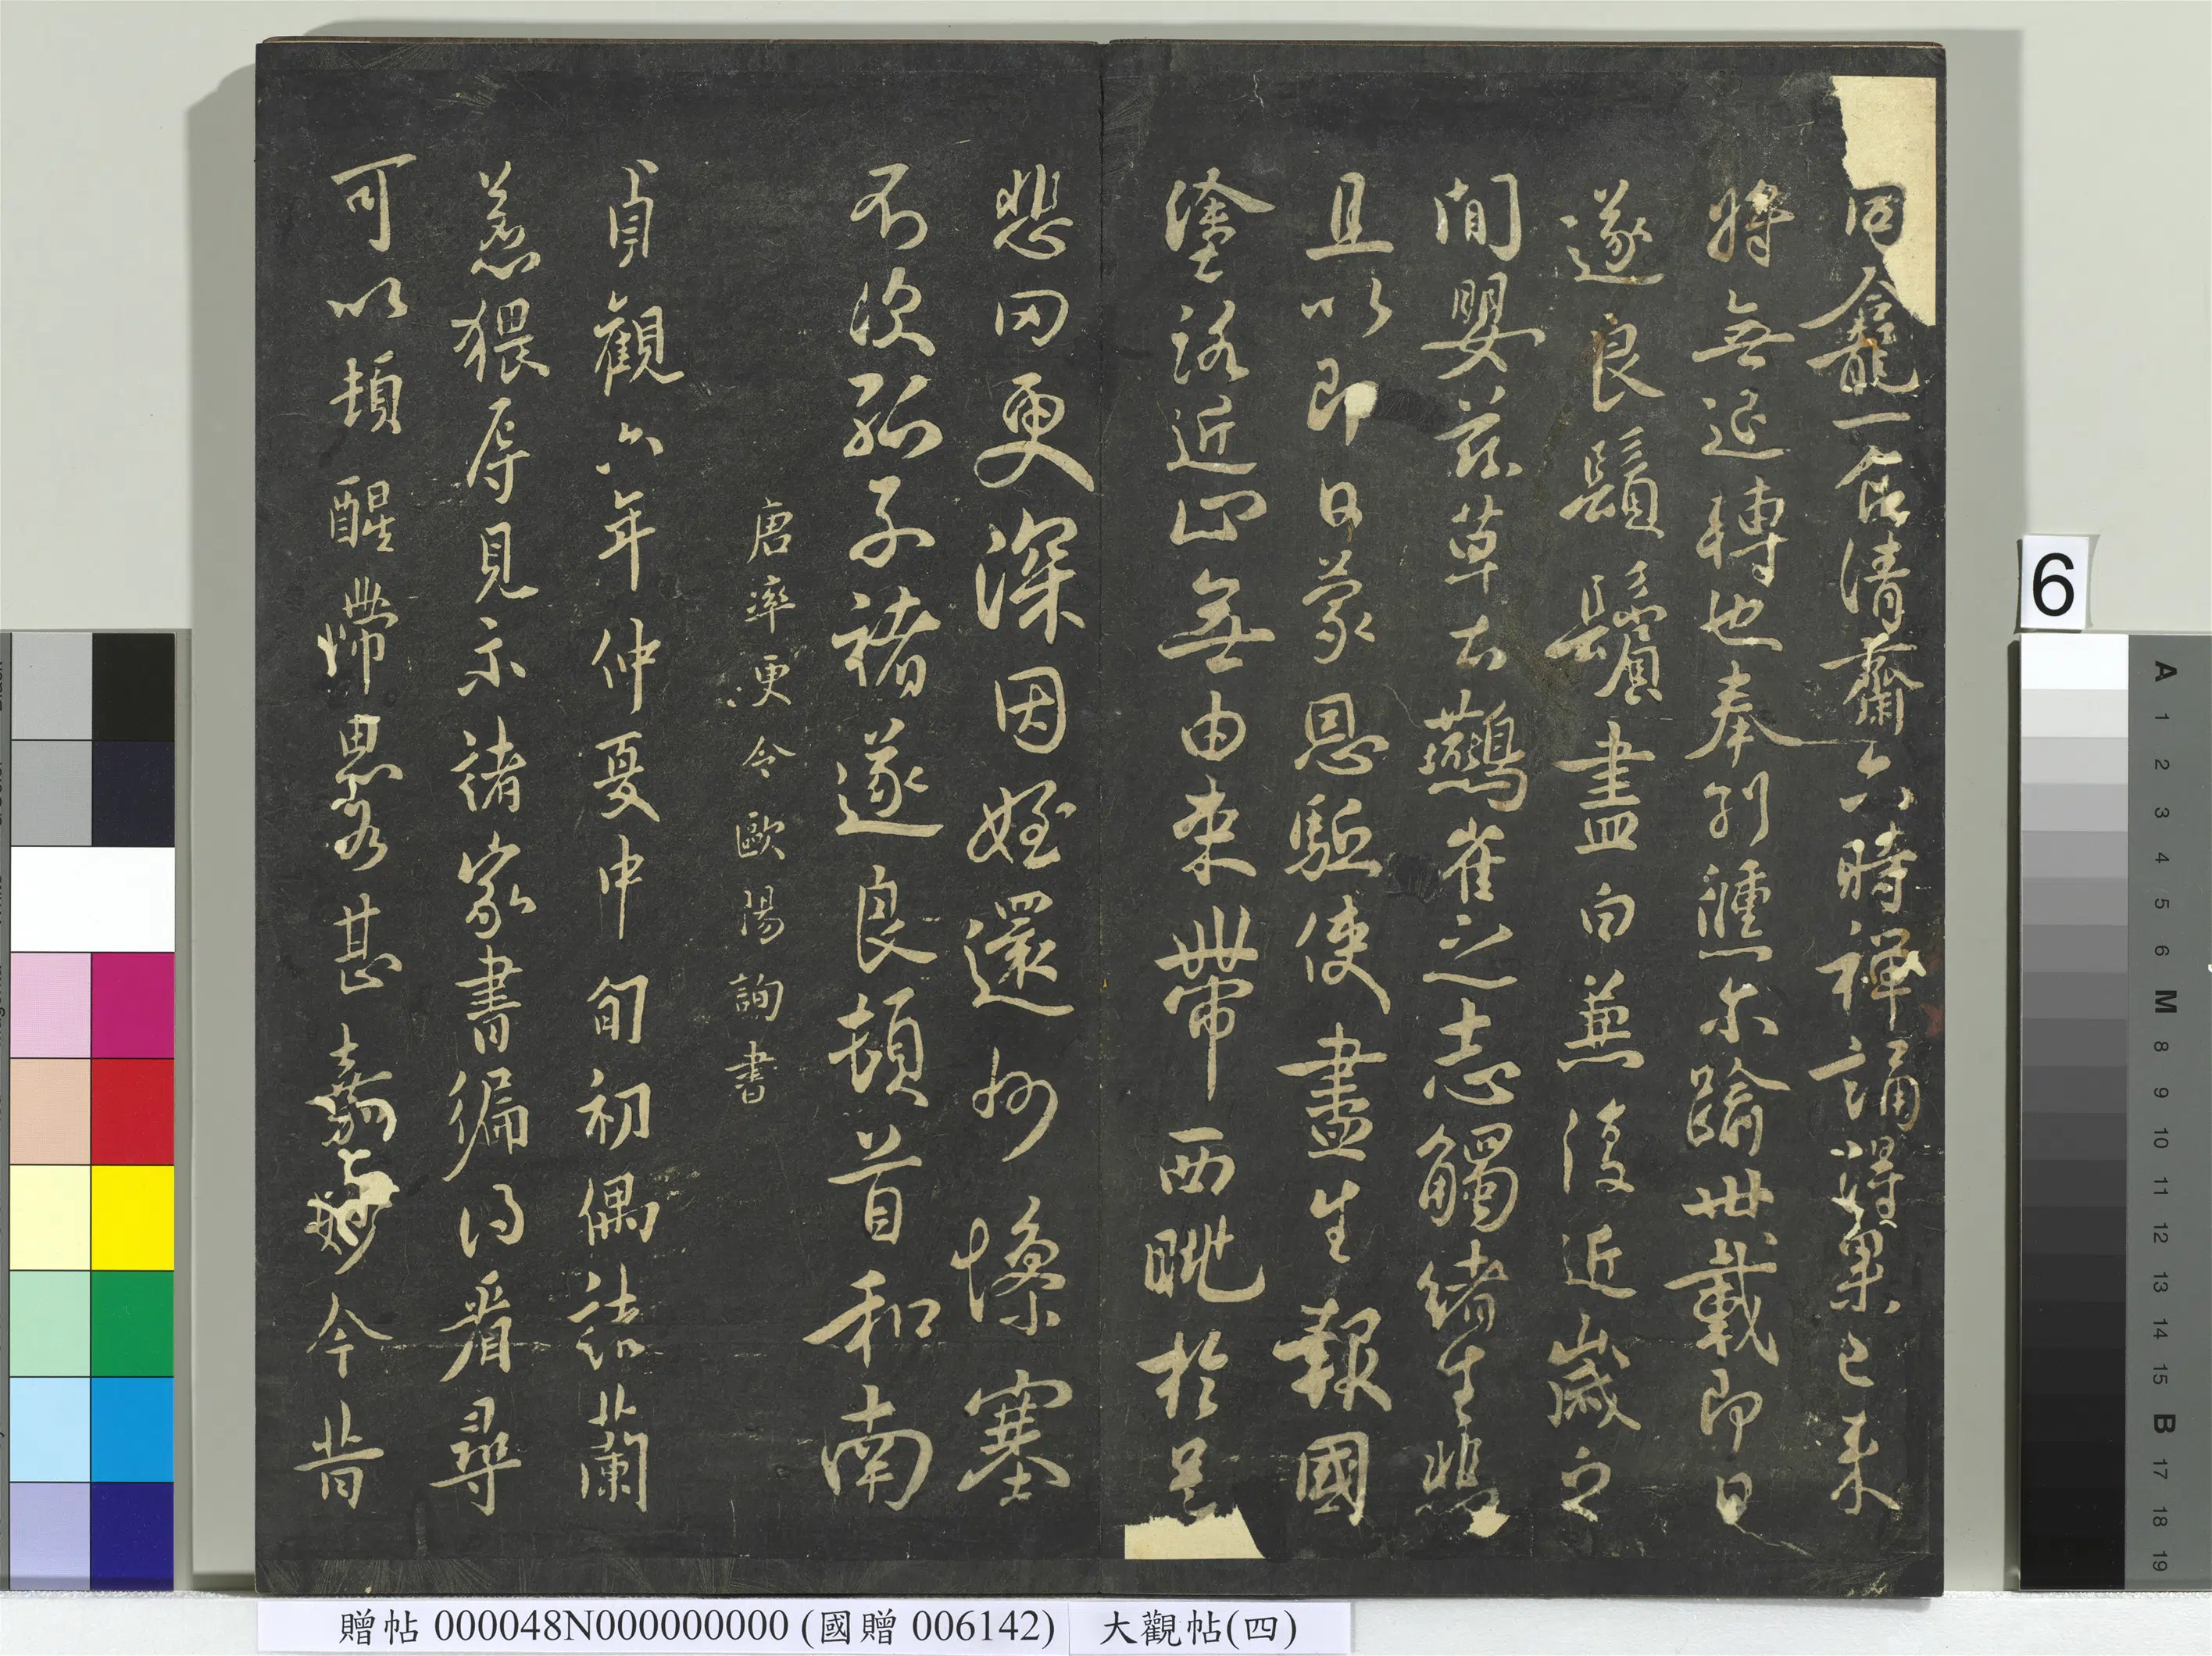 同龕一食清齋六時禪誦得果已來
將無退轉也奉別倐爾踰卅載即日
遂良鬚鬢盡白兼復近歲之
間嬰茲草土鷰雀之志觸緒生悲
且以即日蒙恩驅使盡生報國
塗路近止無由來帶西眺於邑
悲罔更深因姪還州慘塞
不次孤子褚遂良頓首和南
唐率更令歐陽詢書
貞觀六年仲夏中旬初偶詰蘭
若猥辱見示諸家書徧得看尋
可以頓醒滯思畧甚嘉妙今昔
6
A 1 2 3 4 5 6 M 8 9 10 11 12 13 14 15 B 17 18 19
贈帖 000048N000000000 (國贈 006142) 大觀帖(四)